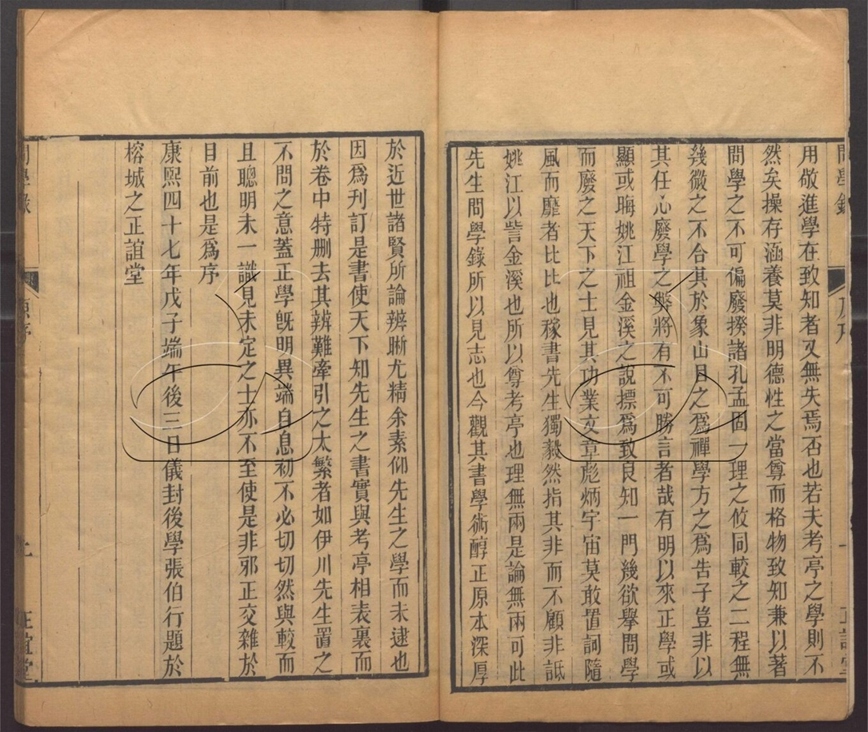 用敬進學在致知者又無失焉否也若夫考亭之學則不
然矣操存涵養莫非明德性之當尊而格物致知兼以著
問學之不可偏廢揆諸孔孟固一理之攸同較之二程無
幾微之不合其於象山目之爲禪學方之爲告子豈非以
其任心廢學之弊將有不可勝言者哉有明以來正學或
顯或晦姚江祖金溪之說標爲致良知一門幾欲舉問學
而廢之天下之士見其功業文章彪炳宇宙莫敢置詞隨
風而靡者比比也稼書先生獨毅然指其非而不顧非詆
姚江以訾金溪也所以尊考亭也理無兩是論無兩可此
先生問學錄所以見志也今觀其書學術醇正原本深厚
於近世諸賢所論辨晰尤精余素仰先生之學而未逮也
因爲刊訂是書使天下知先生之書實與考亭相表裏而
於卷中特删去其辨難牽引之太繁者如伊川先生置之
不問之意蓋正學旣明異端自息初不必切切然與較而
且聰明未一識見未定之士亦不至使是非邪正交雜於
目前也是爲序
康熙四十七年戊子端午後三日儀封後學張伯行題於
榕城之正誼堂
問學錄
原序
正誼堂